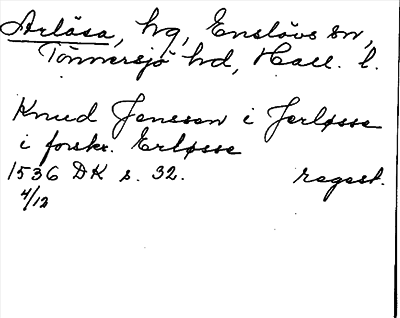 Arlösa, hg, Enslövs sn,
Tönnersjö hd, Hall. l.
Knud Jensson i Jerløsse
i forskr. Erløsse
1536 DK s. 32. regest.
4/12